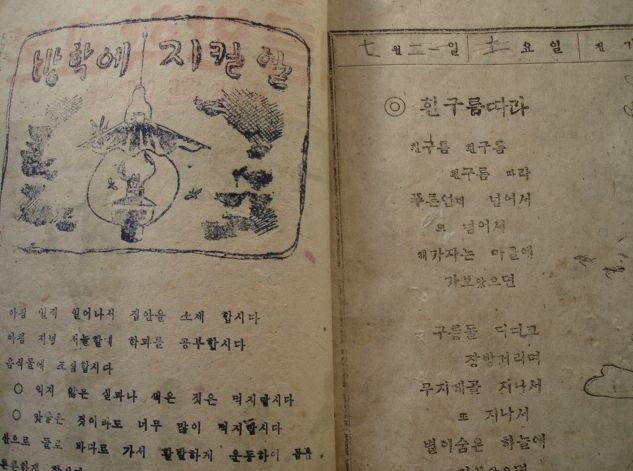 방학에 지킬 일
아침 일직 일어나서 집안을 소제 합시다
아침 저녁 서늘할때 학과를 공부합시다
음식물에 조심합시다
○ 익지 않은 실과나 썩은 것은 먹지말시다
○ 맛있는 것이라도 너무 많이 먹지말시다
산으로 들로 바다로 가서 활발하게 운동하여 몸을
튼튼하게
七 월 二一 일 土 요일
◎ 흰구름따라
흰구름 흰구름
흰구름 따라
푸른언덕 넘어서
또 넘어서
해가자는 마을에
가보았으면
구름을 디디고
장방거리며
무지개를 지나서
또 지나서
별이숨은 하늘에